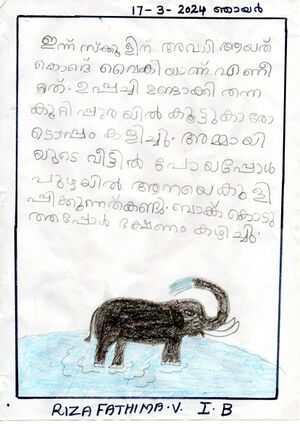 17-3-2024 ഞായർ
ഇന്ന് സ്ക്കൂളിന് അവധി ആയത്
കൊണ്ട് വൈകിയാണ് എണീ
റ്റത്. ഉപ്പച്ചി ഉണ്ടാക്കി തന്ന
കുറ്റിപ്പുരയിൽ കൂട്ടുകാരോ
ടൊപ്പം കളിച്ചു. അമ്മായി
യുടെ വീട്ടിൽ പോയപ്പോൾ
പുഴയിൽ ആനയെകുളി
പ്പിക്കുന്നത്കണ്ടു. ബാങ്ക് കൊടു
ത്തപ്പോൾ ഭക്ഷണം കഴിച്ചു.
RIZA FATHIMA.V. I.B